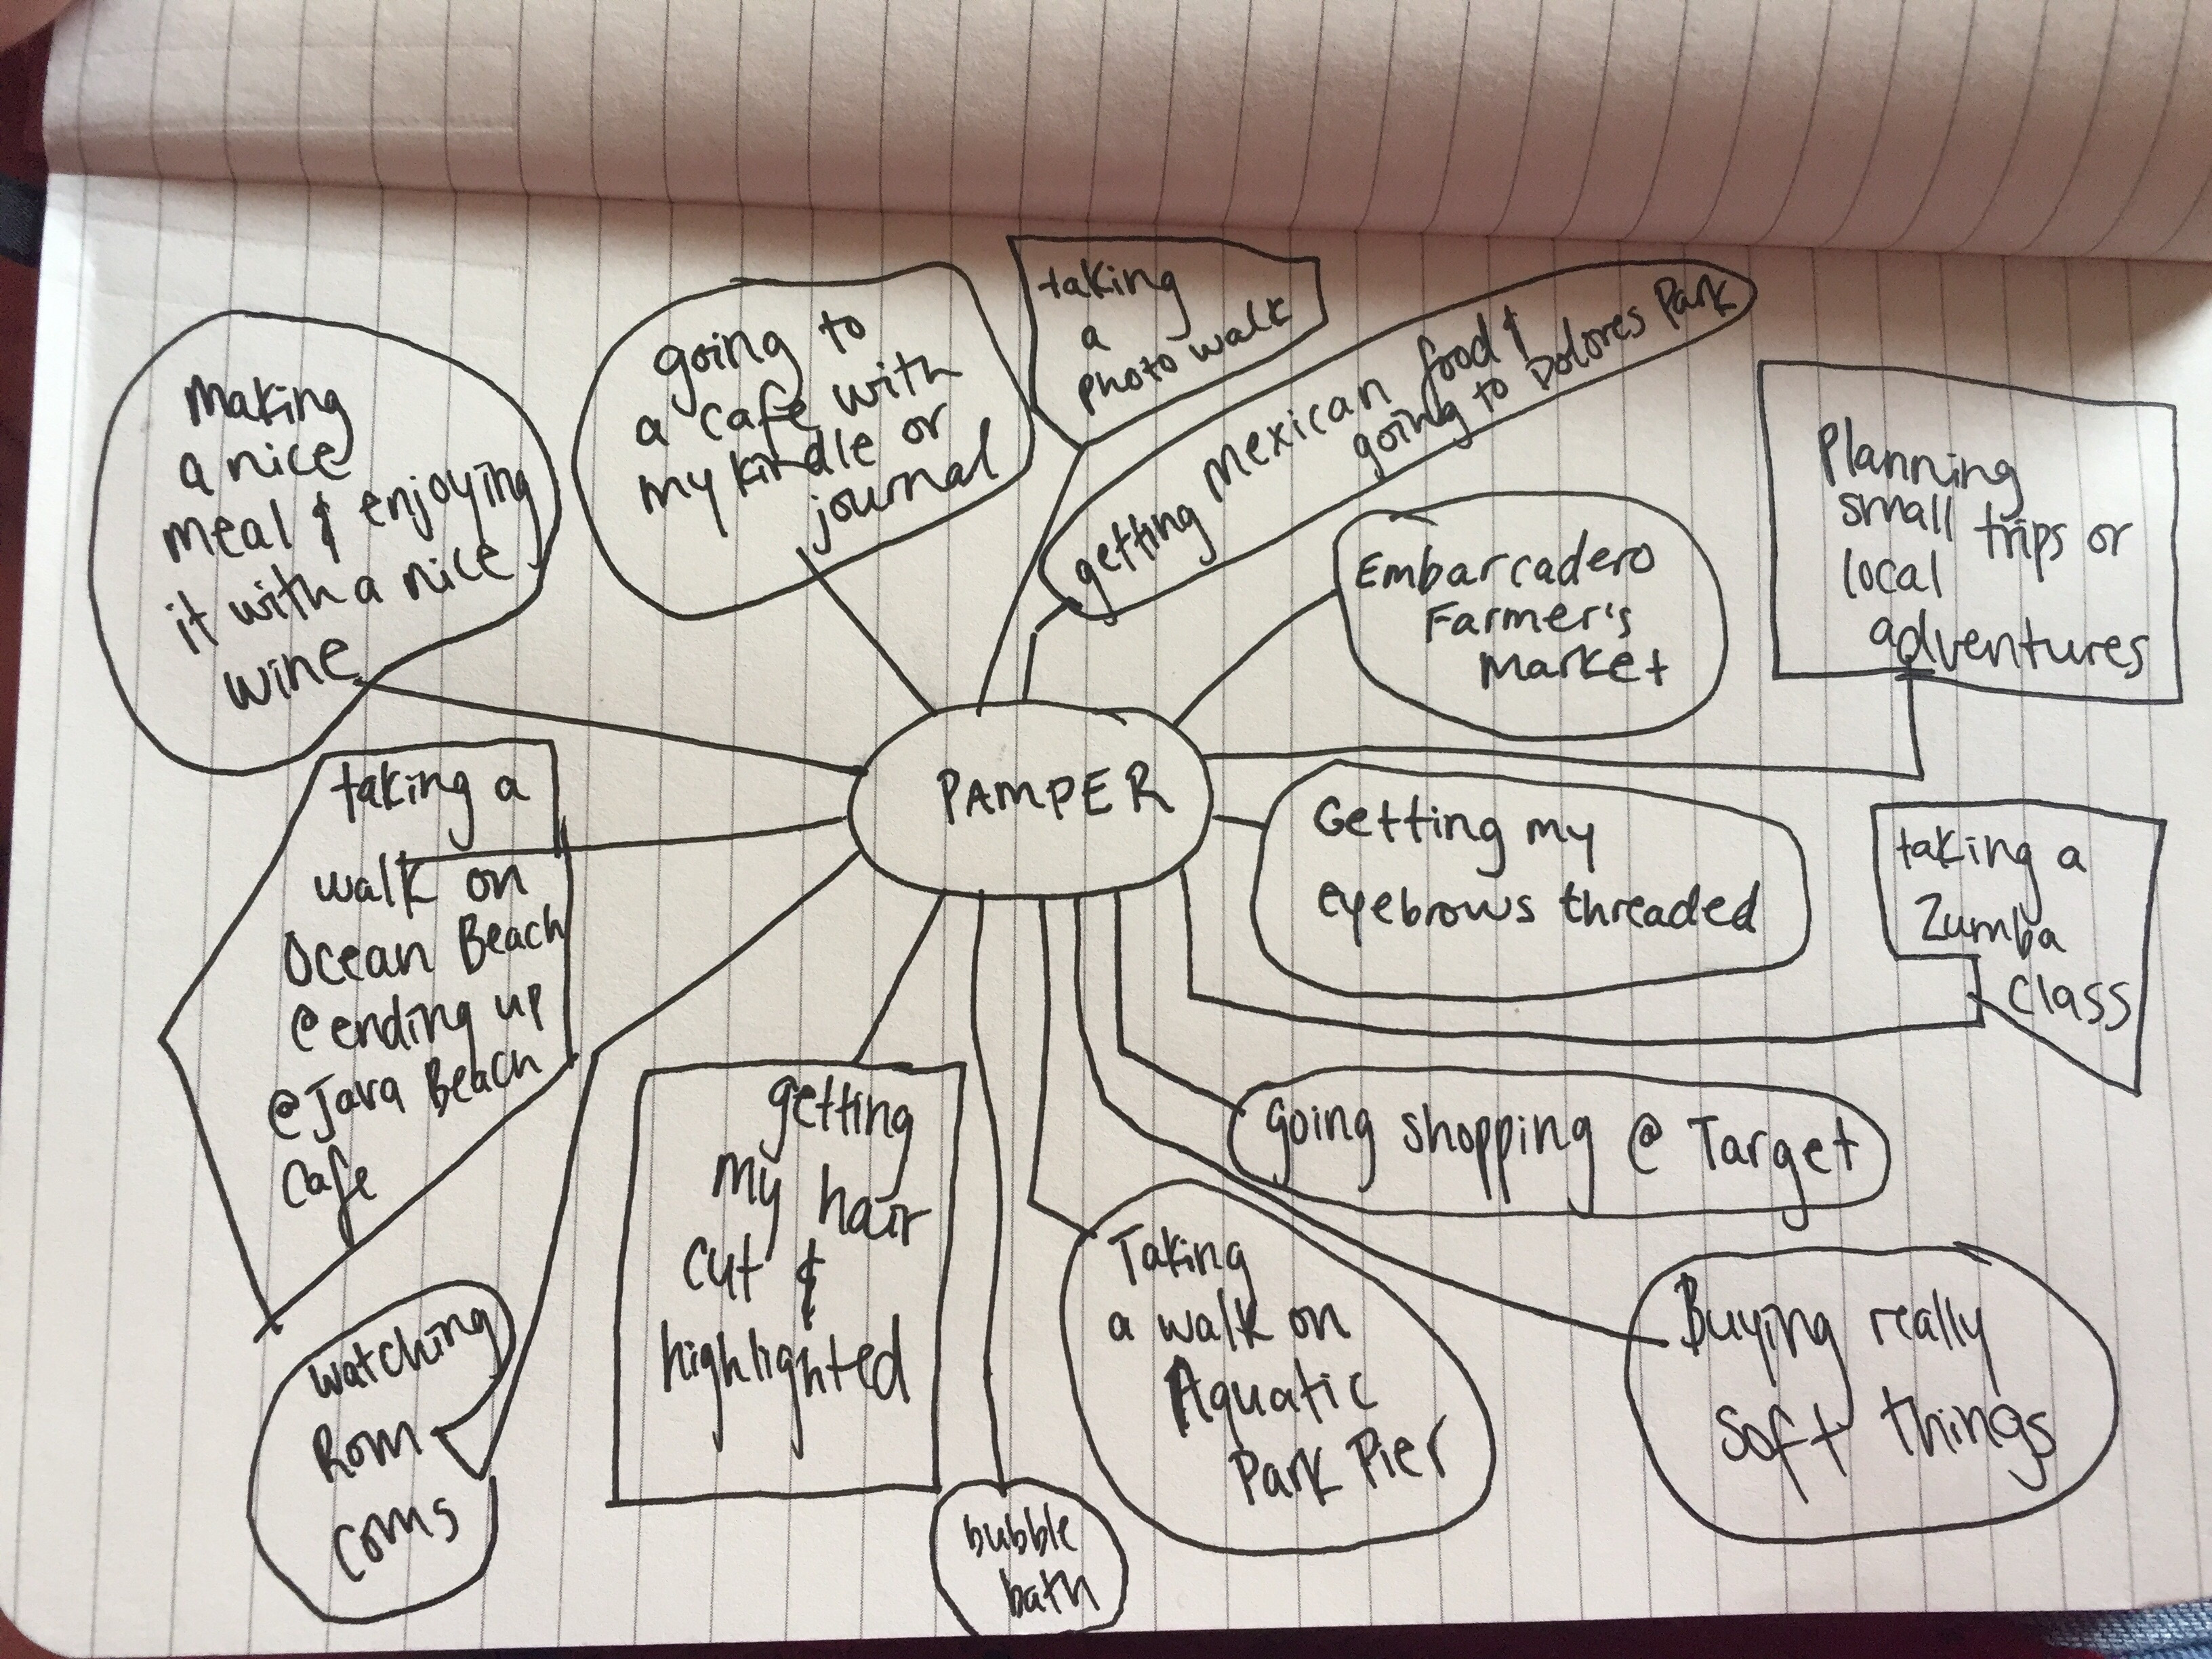 making
a nice
meal & enjoying
it with a nice
wine
going to
a cafe with
my kindle or
journal
taking
a
photo walk
getting mexican food &
going to Dolores Park
Embarcadero
Farmer's
Market
Planning
small trips or
local
adventures
PAMPER
taking a
walk on
Ocean Beach
@ ending up
@ Java Beach
Cafe
Getting my
eyebrows threaded
taking a
Zumba
Class
going shopping @ Target
watching
Rom
coms
getting
my hair
cut &
highlighted
bubble
bath
Taking
a walk on
Aquatic
Park Pier
Buying really
soft things